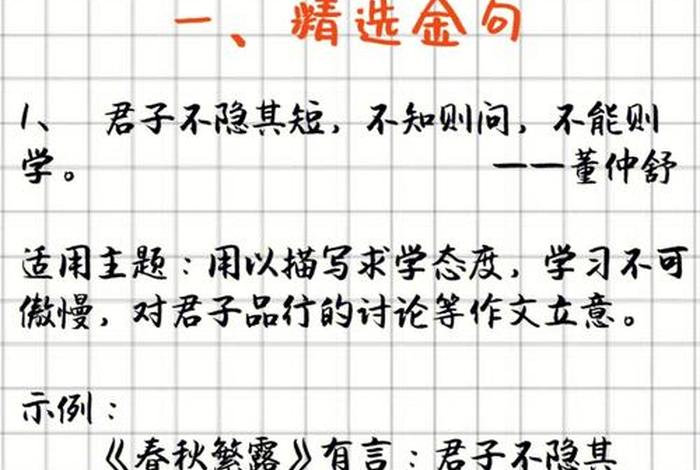 一、精选金句
1、 君子不隐其短，不知则问，不能则
学。 ——董仲舒
适用主题：用以描写求学态度，学习不可
傲慢，对君子品行的讨论等作文立意。
示例：
《春秋繁露》有言：君子不隐其